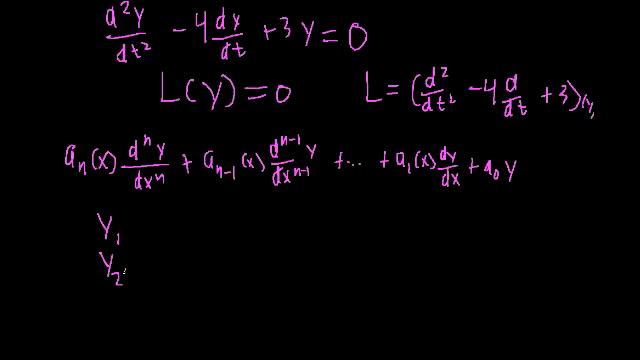 d²y/dt² - 4 dy/dt + 3y = 0
L(y) = 0 L = (d²/dt² - 4 d/dt + 3)(y)
aₙ(x) dⁿy/dxⁿ + aₙ₋₁(x) dⁿ⁻¹y/dxⁿ⁻¹ + ... + a₁(x) dy/dx + a₀ y
y₁
y₂